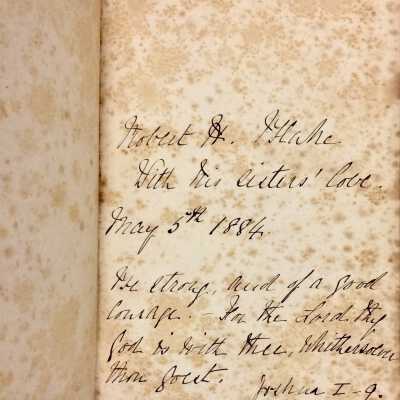 Robert H. Blake
With his sisters' love.
May 5th 1884.
Be strong, and of a good
courage. - For the Lord thy
God is with thee, whithersoever
thou goest.
Joshua I-9.